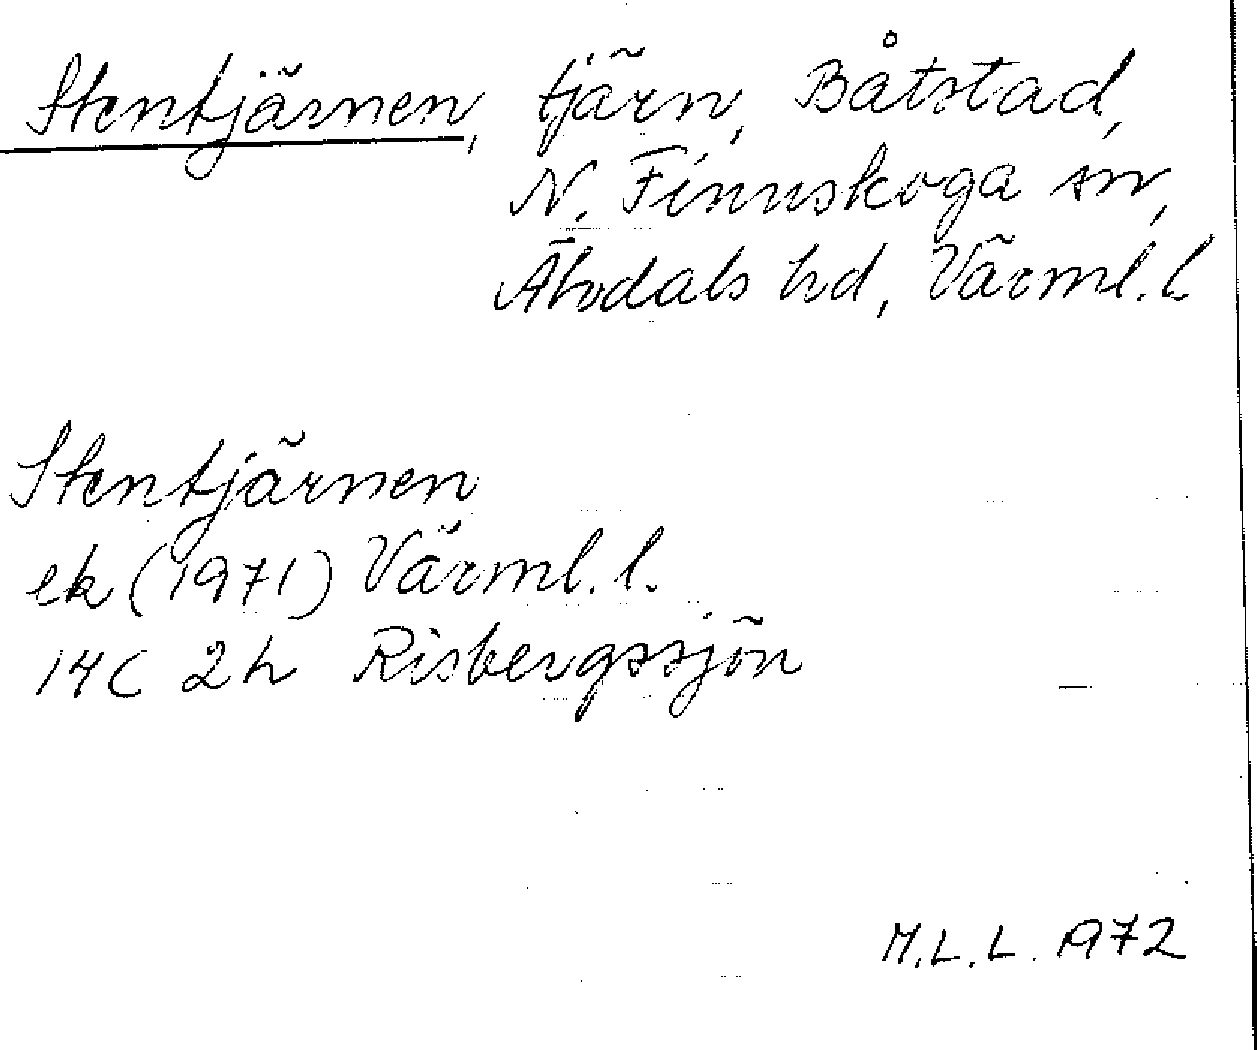 Stentjärnen, tjärn, Båtstad,
N. Finnskoga sn,
Älvdals hd, Värml. l.
Stentjärnen
ek (1971) Värml. l.
14C 2h Risbergssjön
M.L.L. 1972